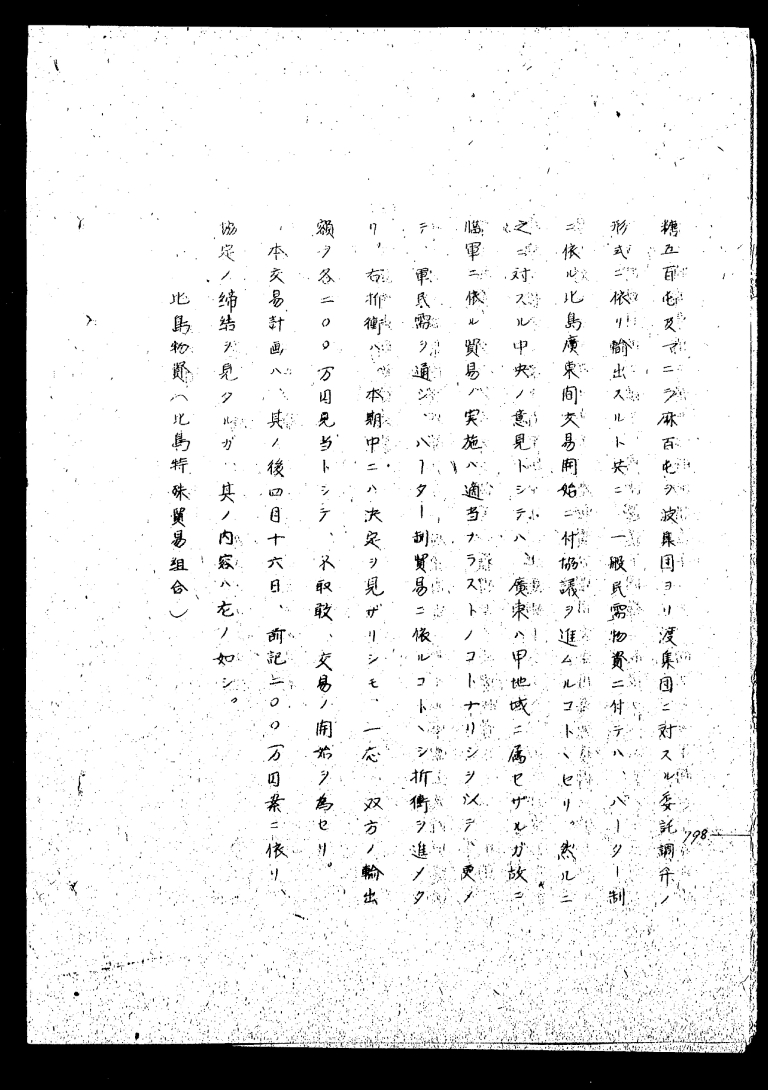 糖五百屯及マニラ麻百屯ヲ波集団ヨリ渡集団ニ対スル委託調弁ノ
形式ニ依リ輸出スルト共ニ、一般民需物資ニ付テハ、バーター制
ニ依ル比島廣東間交易開始ニ付協議ヲ進ムルコトヽセリ。然ルニ
之ニ対スル中央ノ意見トシテハ、廣東ハ甲地域ニ属セザルガ故ニ
臨軍ニ依ル貿易ノ実施ハ適当ナラストノコトナリシヲ以テ、更メ
テ、軍民需ヲ通シ、バーター制貿易ニ依ルコトヽシ折衝ヲ進メタ
リ、右折衝ハ、本期中ニハ決定ヲ見ザリシモ、一応、双方ノ輸出
額ヲ各二〇〇万円見当トシテ、不取敢、交易ノ開始ヲ為セリ。
、本交易計画ハ、其ノ後四月十六日、前記二〇〇万円案ニ依リ、
協定ノ締結ヲ見タルガ、其ノ内容ハ左ノ如シ。
比島物資(比島特殊貿易組合)
798